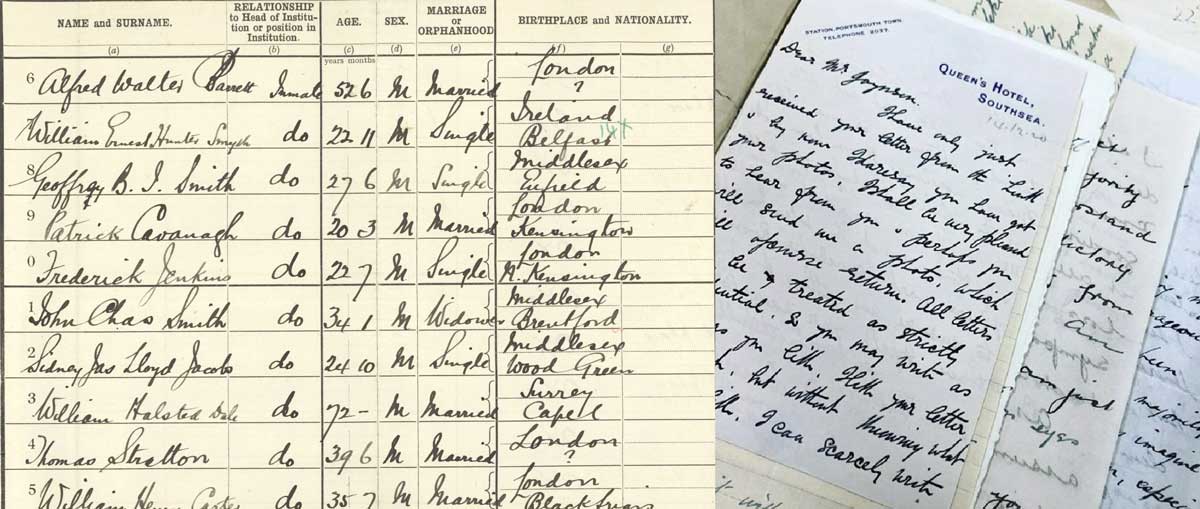 NAME and SURNAME.
RELATIONSHIP
to Head of Institu-
tion or position in
Institution.
AGE.
SEX.
MARRIAGE
or
ORPHANHOOD
BIRTHPLACE and NATIONALITY.
(a) (b) (c) (d) (e) (f) (g)
years months
6 Alfred Walter Barrett Inmate 52 6 M Married London
?
William Ernest Hunter Smyth do 22 11 M Single Ireland
Belfast
8 Geoffrey B. J. Smith do 27 6 M Single Middlesex
Enfield
9 Patrick Cavanagh do 20 3 M Married London
Kensington
0 Frederick Jenkins do 22 7 M Single London
N. Kensington
1 John Chas Smith do 34 1 M Widower Middlesex
Brentford
2 Sidney Jas Lloyd Jacobs do 24 10 M Single Middlesex
Wood Green
3 William Halsted Dale do 72 - M Married Surrey
Capel
4 Thomas Stretton do 39 6 M Married London
?
5 William Henry Carter do 35 7 M Married London
Blackfriars
STATION, PORTSMOUTH TOWN.
TELEPHONE 2037.
QUEEN'S HOTEL,
SOUTHSEA.
14/12/20
Dear Mr Joynson.
I have only just
received your letter from the Link
& by now I daresay you have got
your photos. I shall be very pleased
to hear from you & perhaps you
will send me a photo, which
of course return. All letters
be treated as strictly
& you may write as
you like. With your letter
but without knowing what
I can scarcely write
from
am
just
you